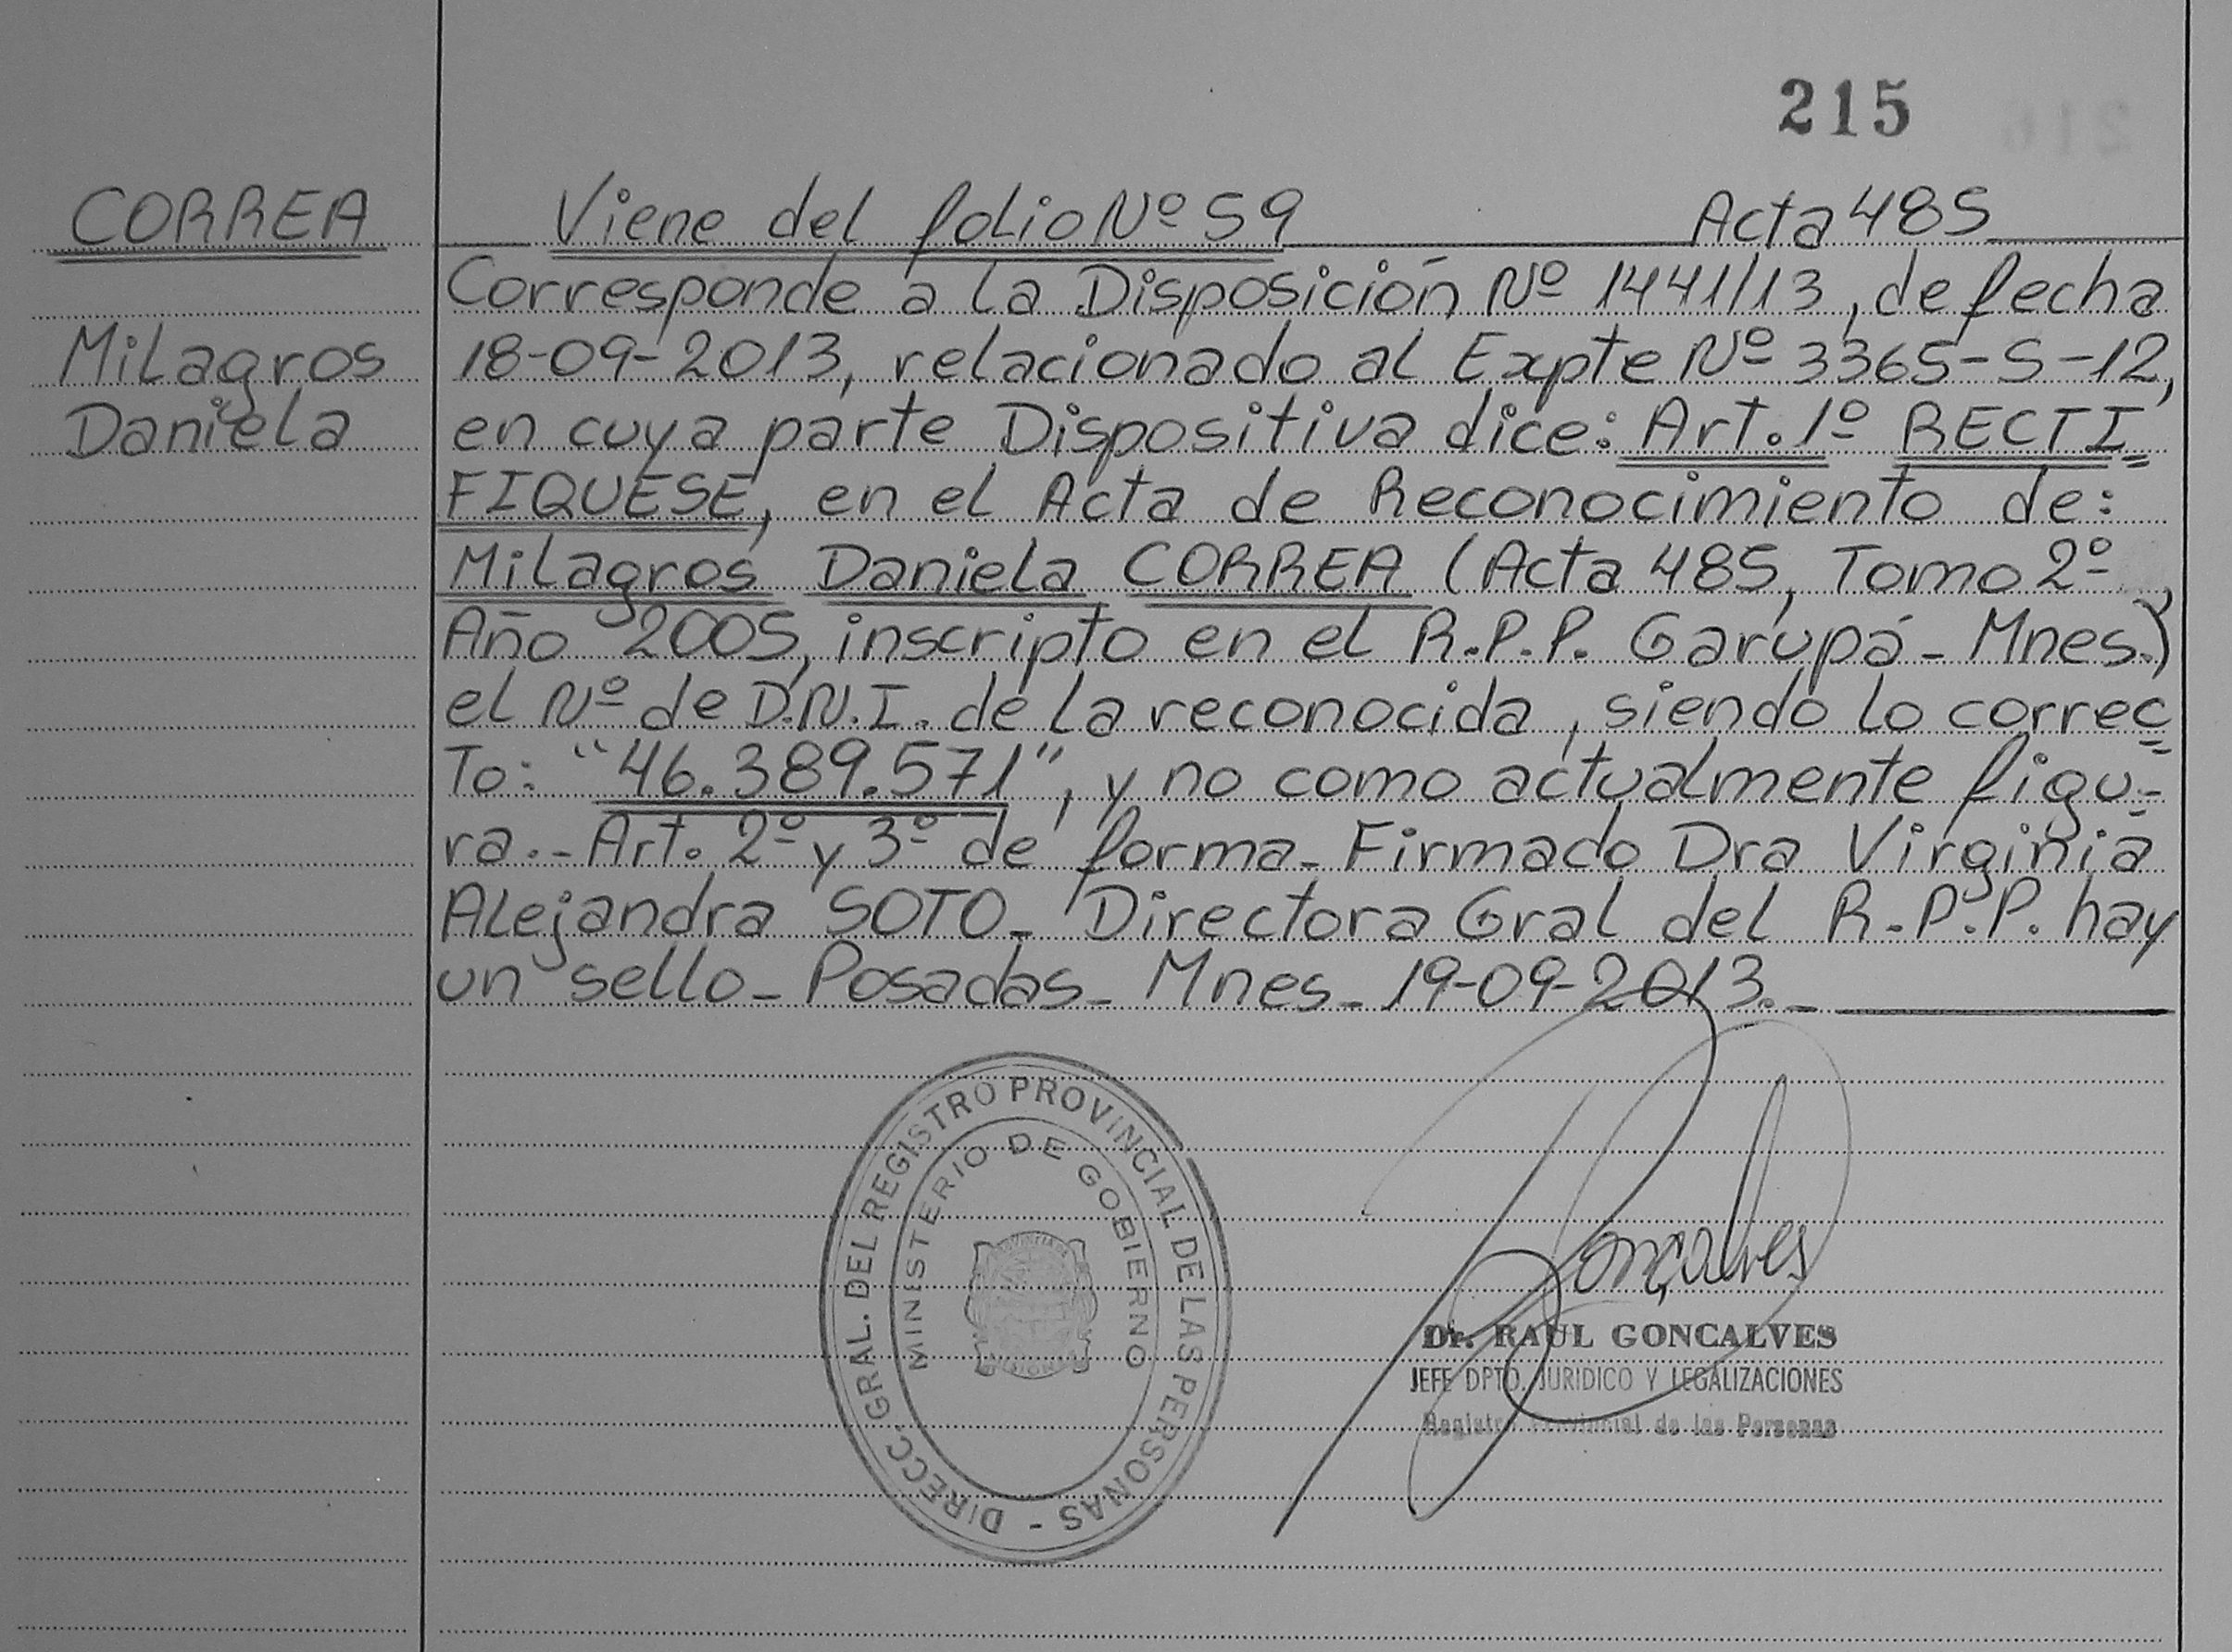 215
CORREA
Milagros
Daniela
Viene del folio Nº 59 Acta 485
Corresponde a la Disposición Nº 1441/13, de fecha
18-09-2013, relacionado al Expte Nº 3365-S-12,
en cuya parte Dispositiva dice: Art. 1º RECTI=
FIQUESE, en el Acta de Reconocimiento de:
Milagros Daniela CORREA (Acta 485, Tomo 2º,
Año 2005, inscripto en el R.P.P. Garupá - Mnes.)
el Nº de D.N.I. de la reconocida, siendo lo correc=
To: "46.389.571", y no como actualmente figu=
ra.- Art. 2º y 3º de forma- Firmado Dra Virginia
Alejandra SOTO- Directora Gral del R.P.P. hay
un sello- Posadas- Mnes- 19-09-2013.-
DIRECC. GRAL. DEL REGISTRO PROVINCIAL DE LAS PERSONAS -
MINISTERIO DE GOBIERNO
Gonçalves
Dr. RAUL GONCALVES
JEFE DPTO. JURIDICO Y LEGALIZACIONES
Registro Provincial de las Personas